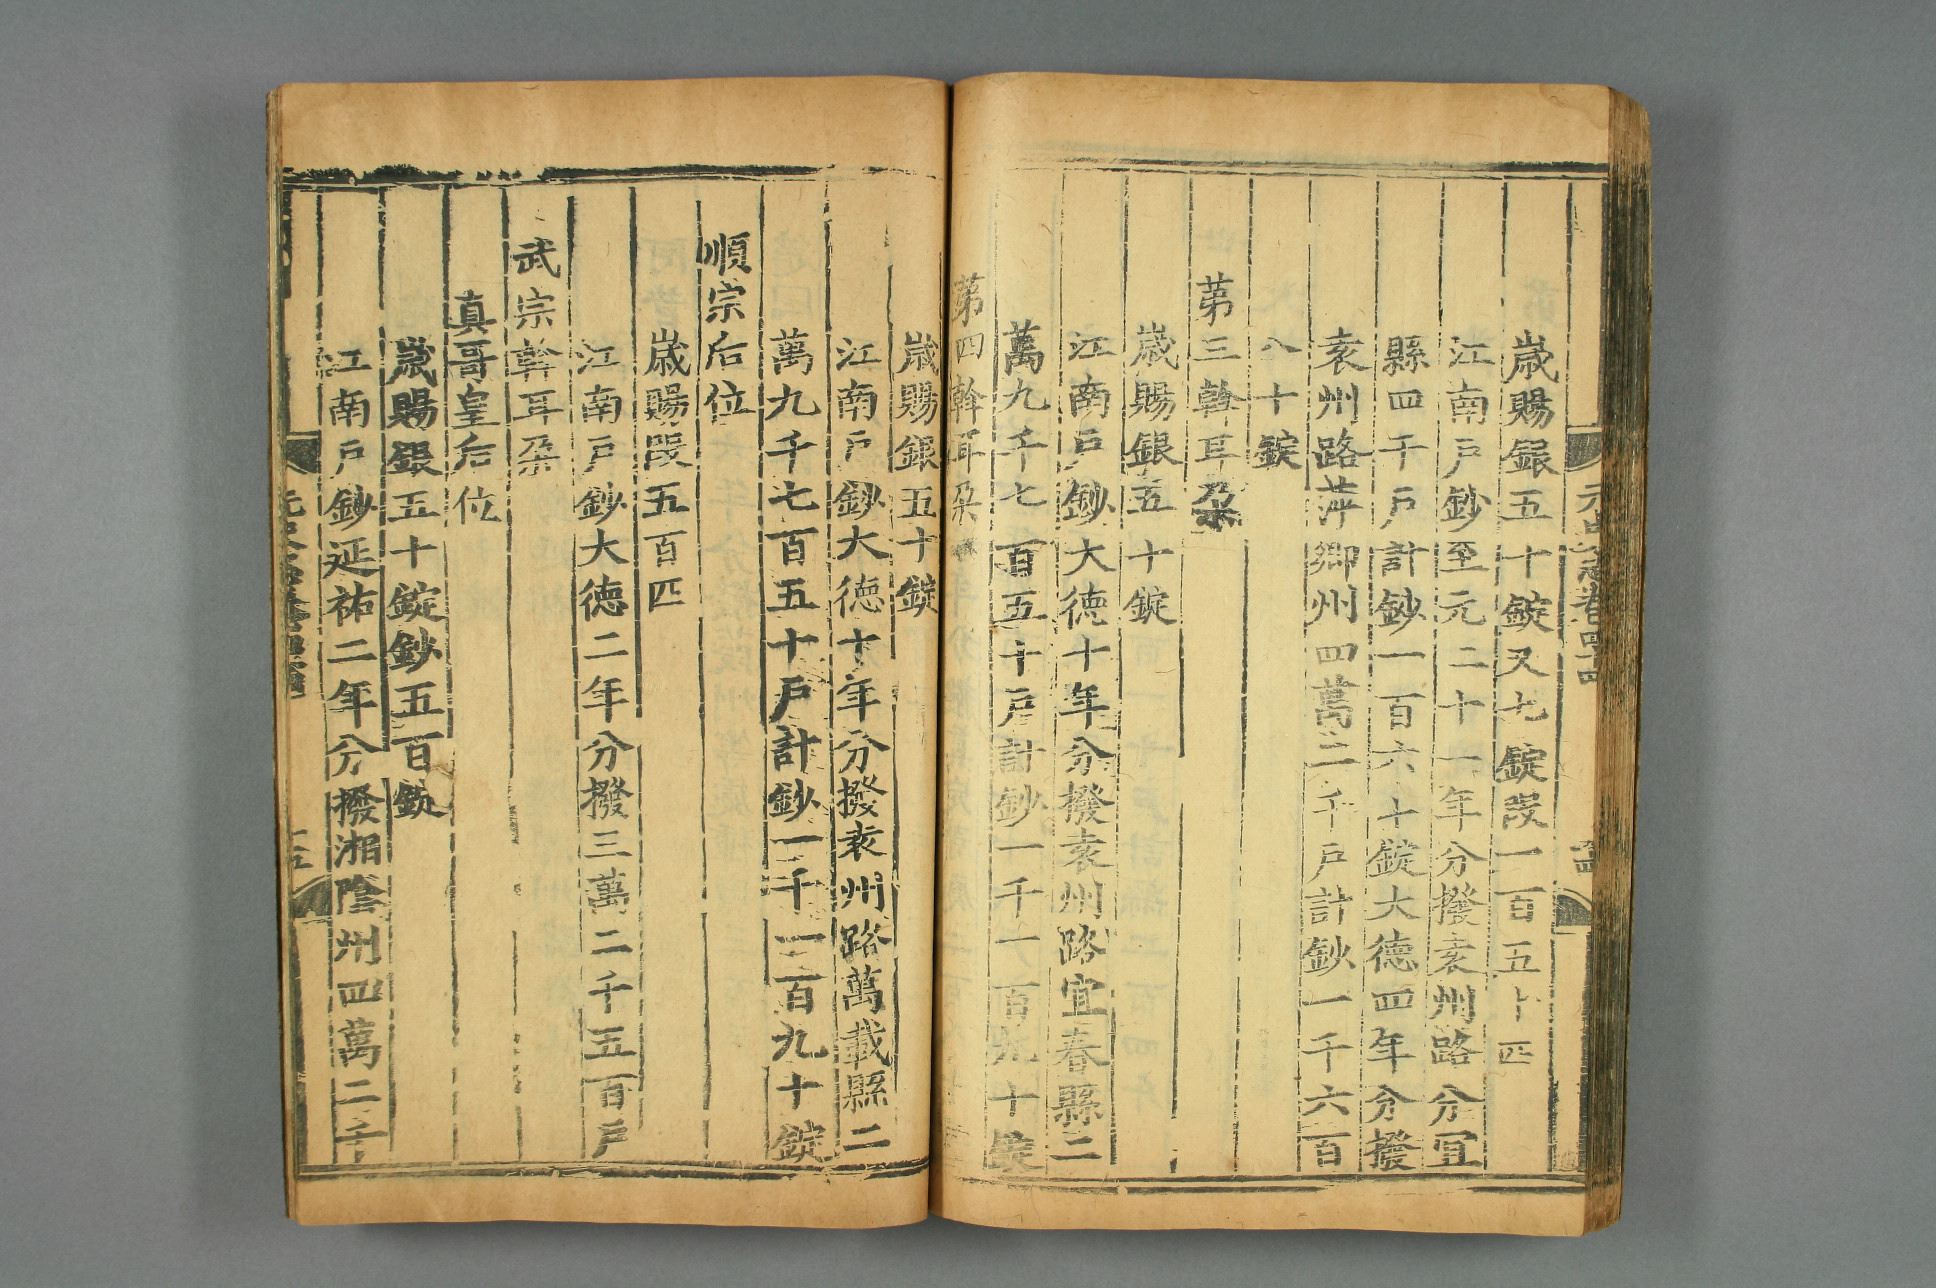 歲賜銀五十錠又七錠段一百五十匹
江南戶鈔至元二十一年分撥袁州路分宜
縣四千戶計鈔一百六十錠大德四年分撥
袁州路萍鄉州四萬二千戶計鈔一千六百
八十錠
第三斡耳朶
歲賜銀五十錠
江南戶鈔大德十年分撥袁州路宜春縣二
萬九千七百五十戶計鈔一千一百九十錠
第四斡耳朶
歲賜銀五十錠
江南戶鈔大德十年分撥袁州路萬載縣二
萬九千七百五十戶計鈔一千一百九十錠
順宗后位
歲賜段五百匹
江南戶鈔大德二年分撥三萬二千五百戶
武宗斡耳朶
真哥皇后位
歲賜銀五十錠鈔五百錠
江南戶鈔延祐二年分撥湘陰州四萬二千